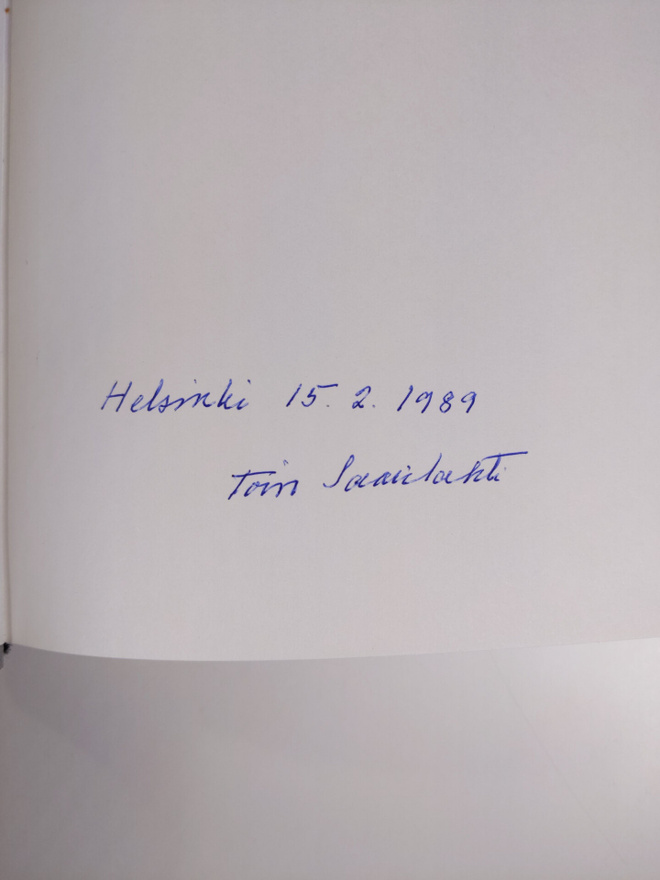 Helsinki 15.2.1989
Toin Saarilahti